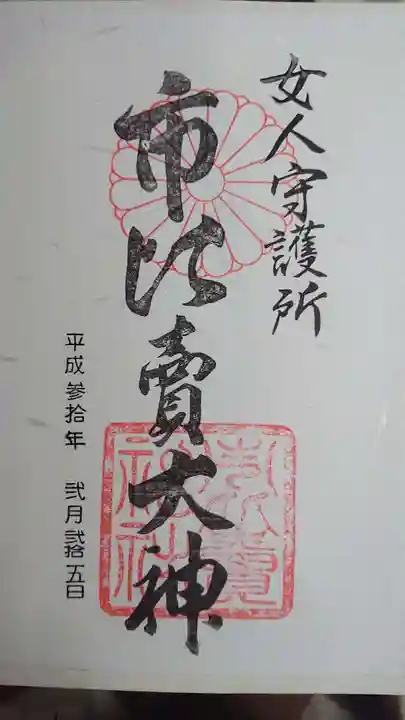 女人守護所
市比賣大神
平成参拾年 弐月弐拾五日